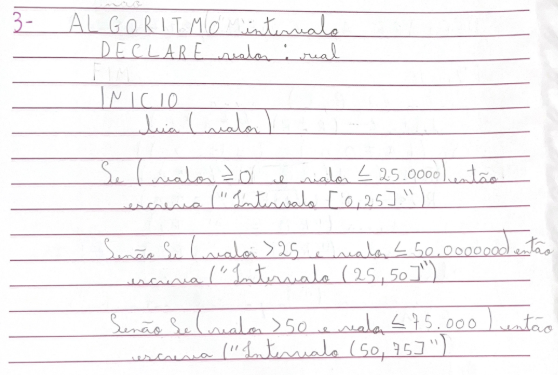 3- ALGORITMO intervalo
DECLARE valor : real
FIM
INICIO
leia (valor)
Se (valor ≥ 0 e valor ≤ 25.0000) então
escreva ("Intervalo [0,25]")
Senão Se (valor > 25 e valor ≤ 50.0000000) então
escreva ("Intervalo (25,50]")
Senão Se (valor > 50 e valor ≤ 75.000) então
escreva ("Intervalo (50,75]")